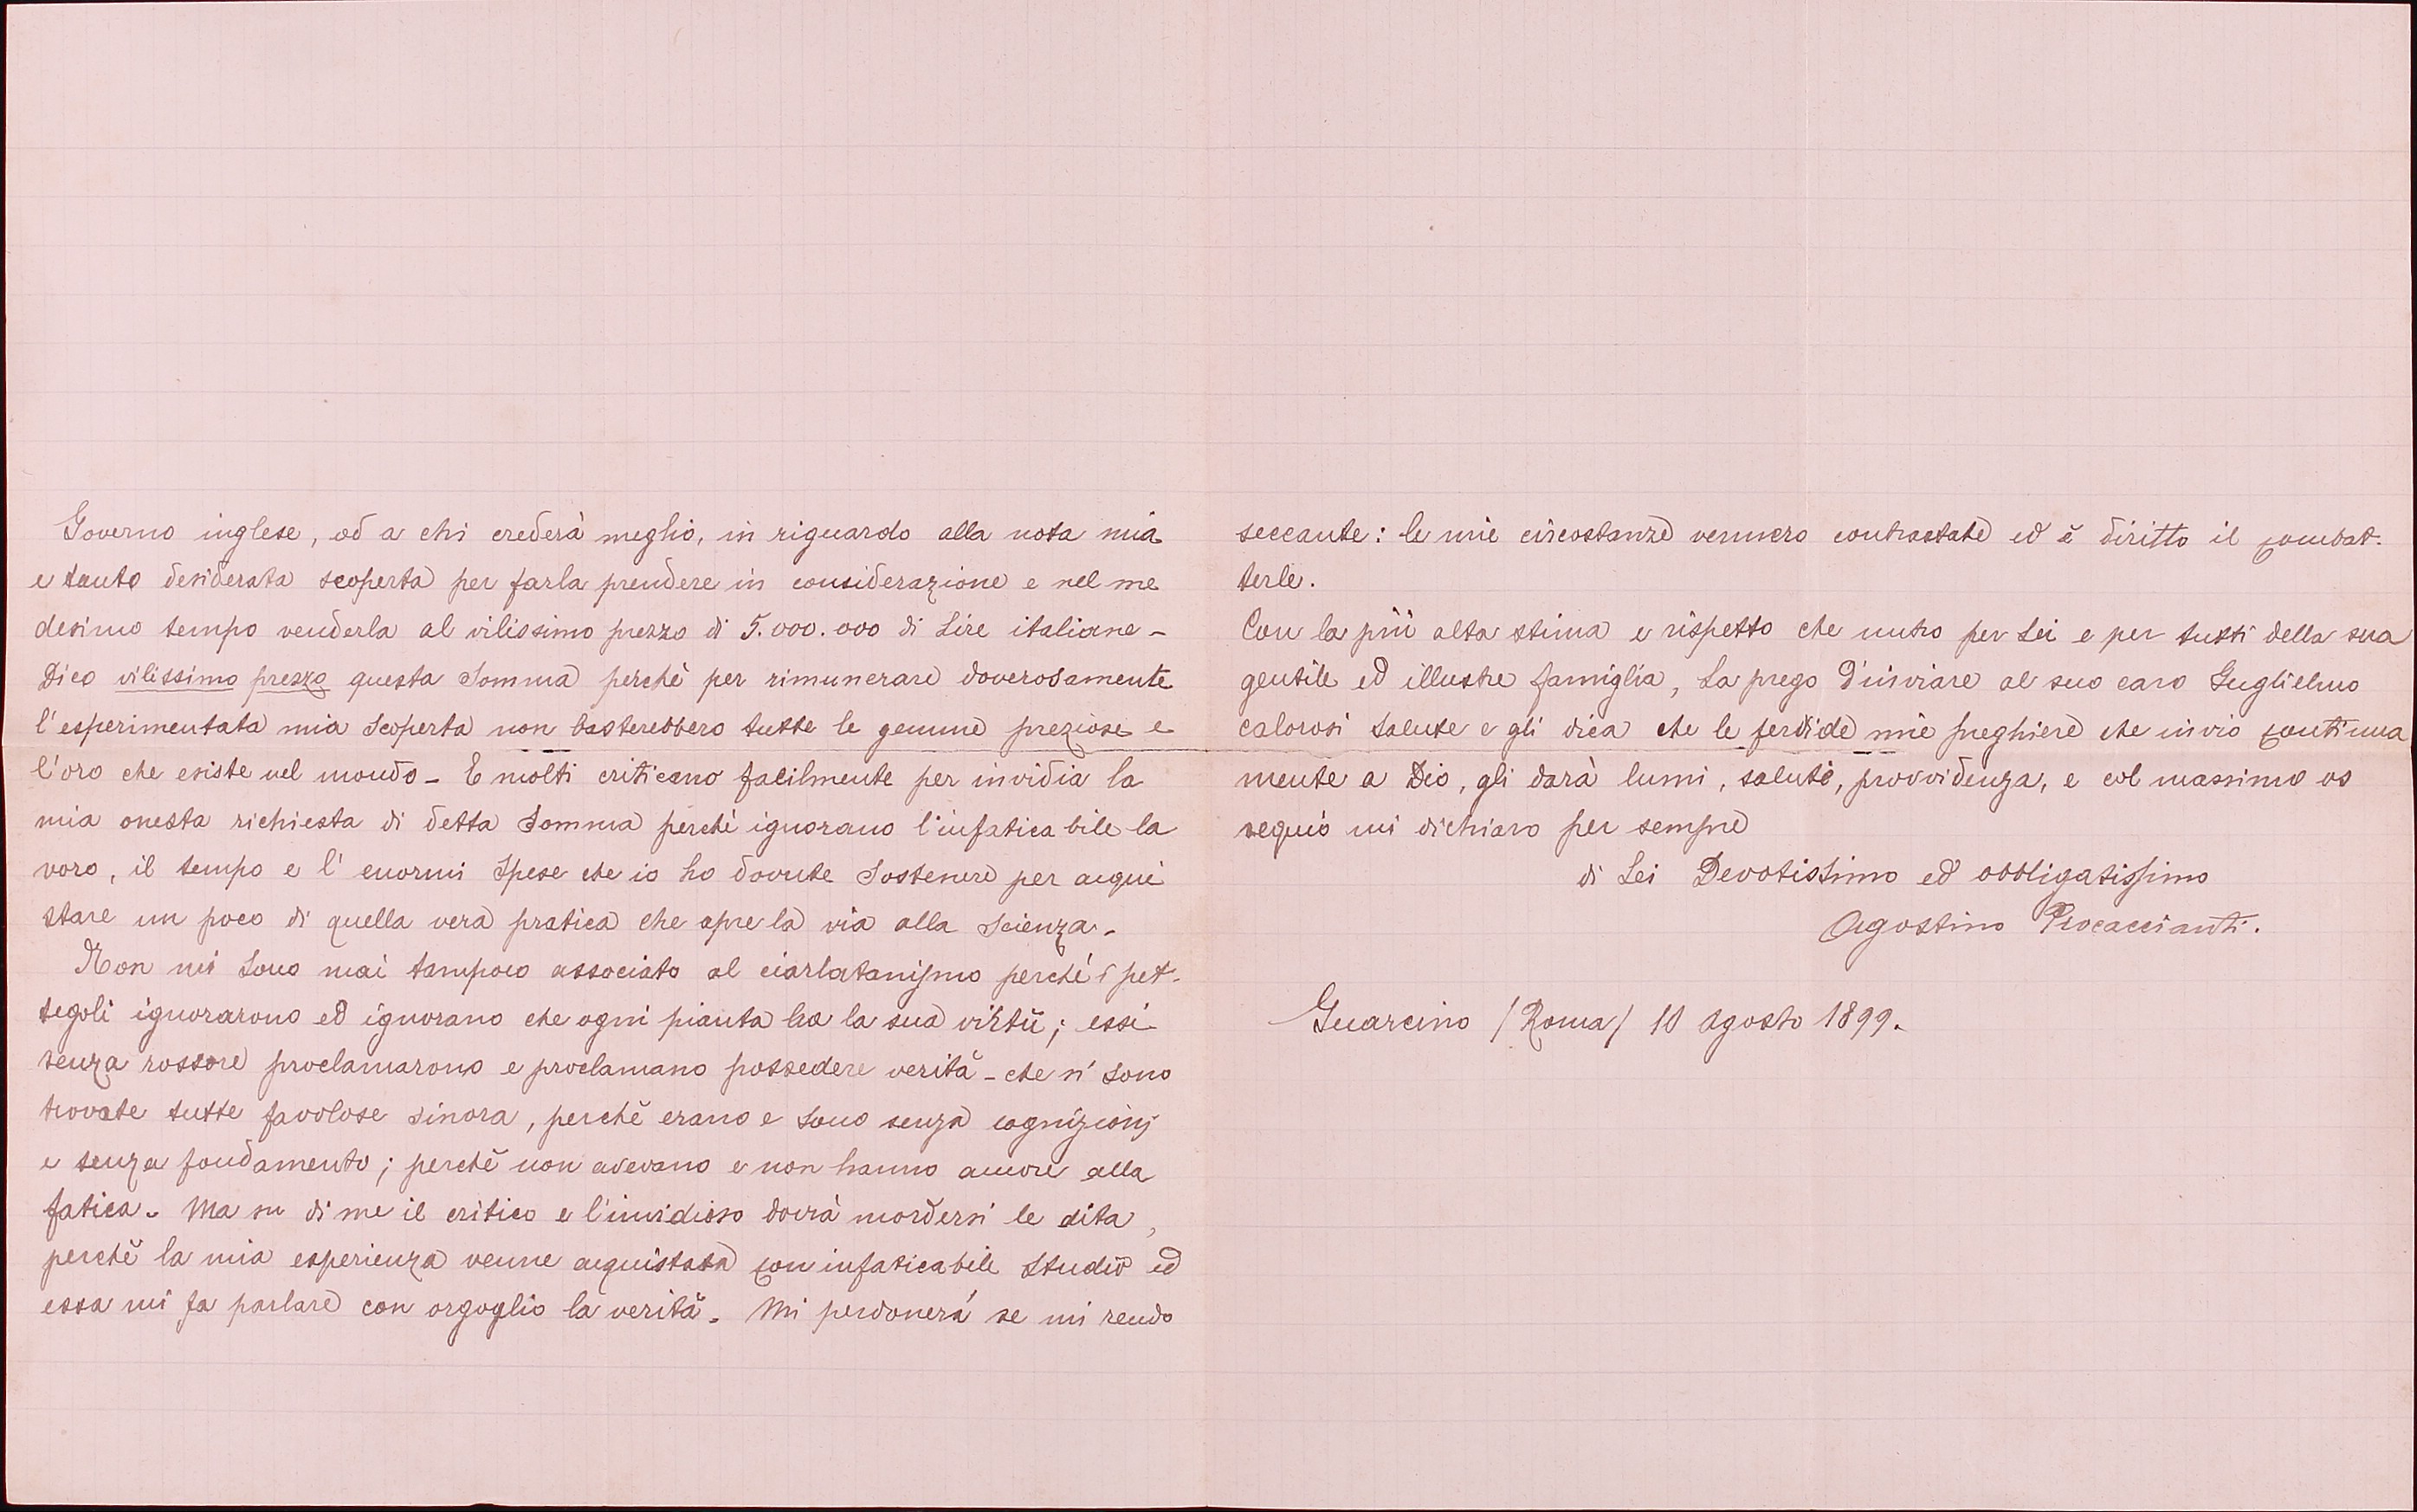 Governo inglese, od a chi crederà meglio, in riguardo alla nota mia
e tanto desiderata scoperta per farla prendere in considerazione e nel me
desimo tempo venderla al vilissimo prezzo di 5.000.000 di Lire italiane -
Dico vilissimo prezzo questa Somma perchè per rimunerare doverosamente
l'esperimentata mia scoperta non basterebbero tutte le gemme preziose e
l'oro che esiste nel mondo - E molti criticano facilmente per invidia la
mia onesta richiesta di detta Somma perchè ignorano l'infaticabile la
voro, il tempo e l'enormi spese che io ho dovute sostenere per acqui
stare un poco di quella vera pratica che apre la via alla Scienza.
Non mi sono mai tampoco associato al ciarlatanismo perchè i pet-
tegoli ignorarono ed ignorano che ogni pianta ha la sua virtù; essi
senza rossore proclamarono e proclamano possedere verità - che si sono
trovate tutte favolose sinora, perchè erano e sono senza cognizioni
e senza fondamento; perchè non avevano e non hanno amore alla
fatica. Ma su di me il critico e l'invidioso dovrà mordersi le dita,
perchè la mia esperienza venne acquistata con infaticabile studio ed
essa mi fa parlare con orgoglio la verità. Mi perdonerà se mi rendo
seccante: le mie circostanze vennero contrastate ed è diritto il combat-
terle.
Con la più alta stima e rispetto che nutro per Lei e per tutti della sua
gentile ed illustre famiglia, La prego d'inviare al suo caro Guglielmo
calorosi salute e gli dica che le fervide mie preghiere che invio continua
mente a Dio, gli darà lumi, salute, provvidenza, e col massimo os
sequio mi dichiaro per sempre
di Lei Devotissimo ed obbligatissimo
Agostino Procaccianti.
Guarcino /Roma/ 10 Agosto 1899.